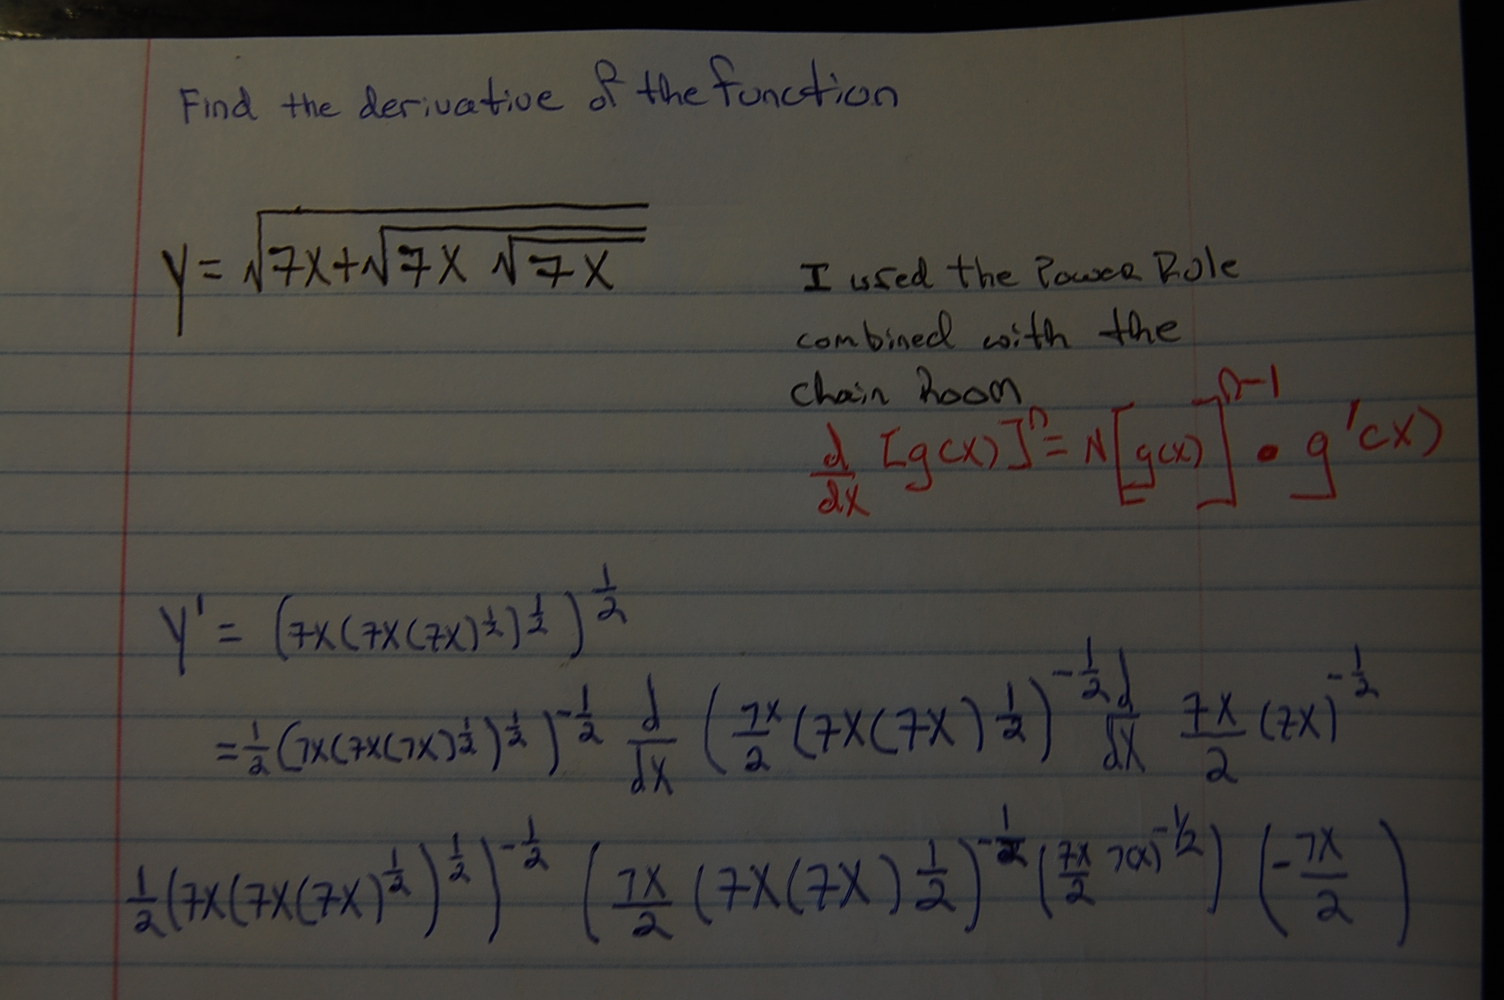 Find the derivative of the function
y = √(7x + √(7x √(7x)))
I used the Power Role
combined with the
chain Room
d/dx [g(x)]^n = N[g(x)]^(n-1) • g'(x)
y' = (7x(7x(7x)^½)^½)^½
= ½(7x(7x(7x)^½)^½)^-½ d/dx (7x/2 (7x(7x)½)^-½ d/dx 7x/2 (7x)^-½
½(7x(7x(7x)^½)^½)^-½ (7x/2 (7x(7x)½)^-½ (7x/2 7(x)^-½) (-7x/2)